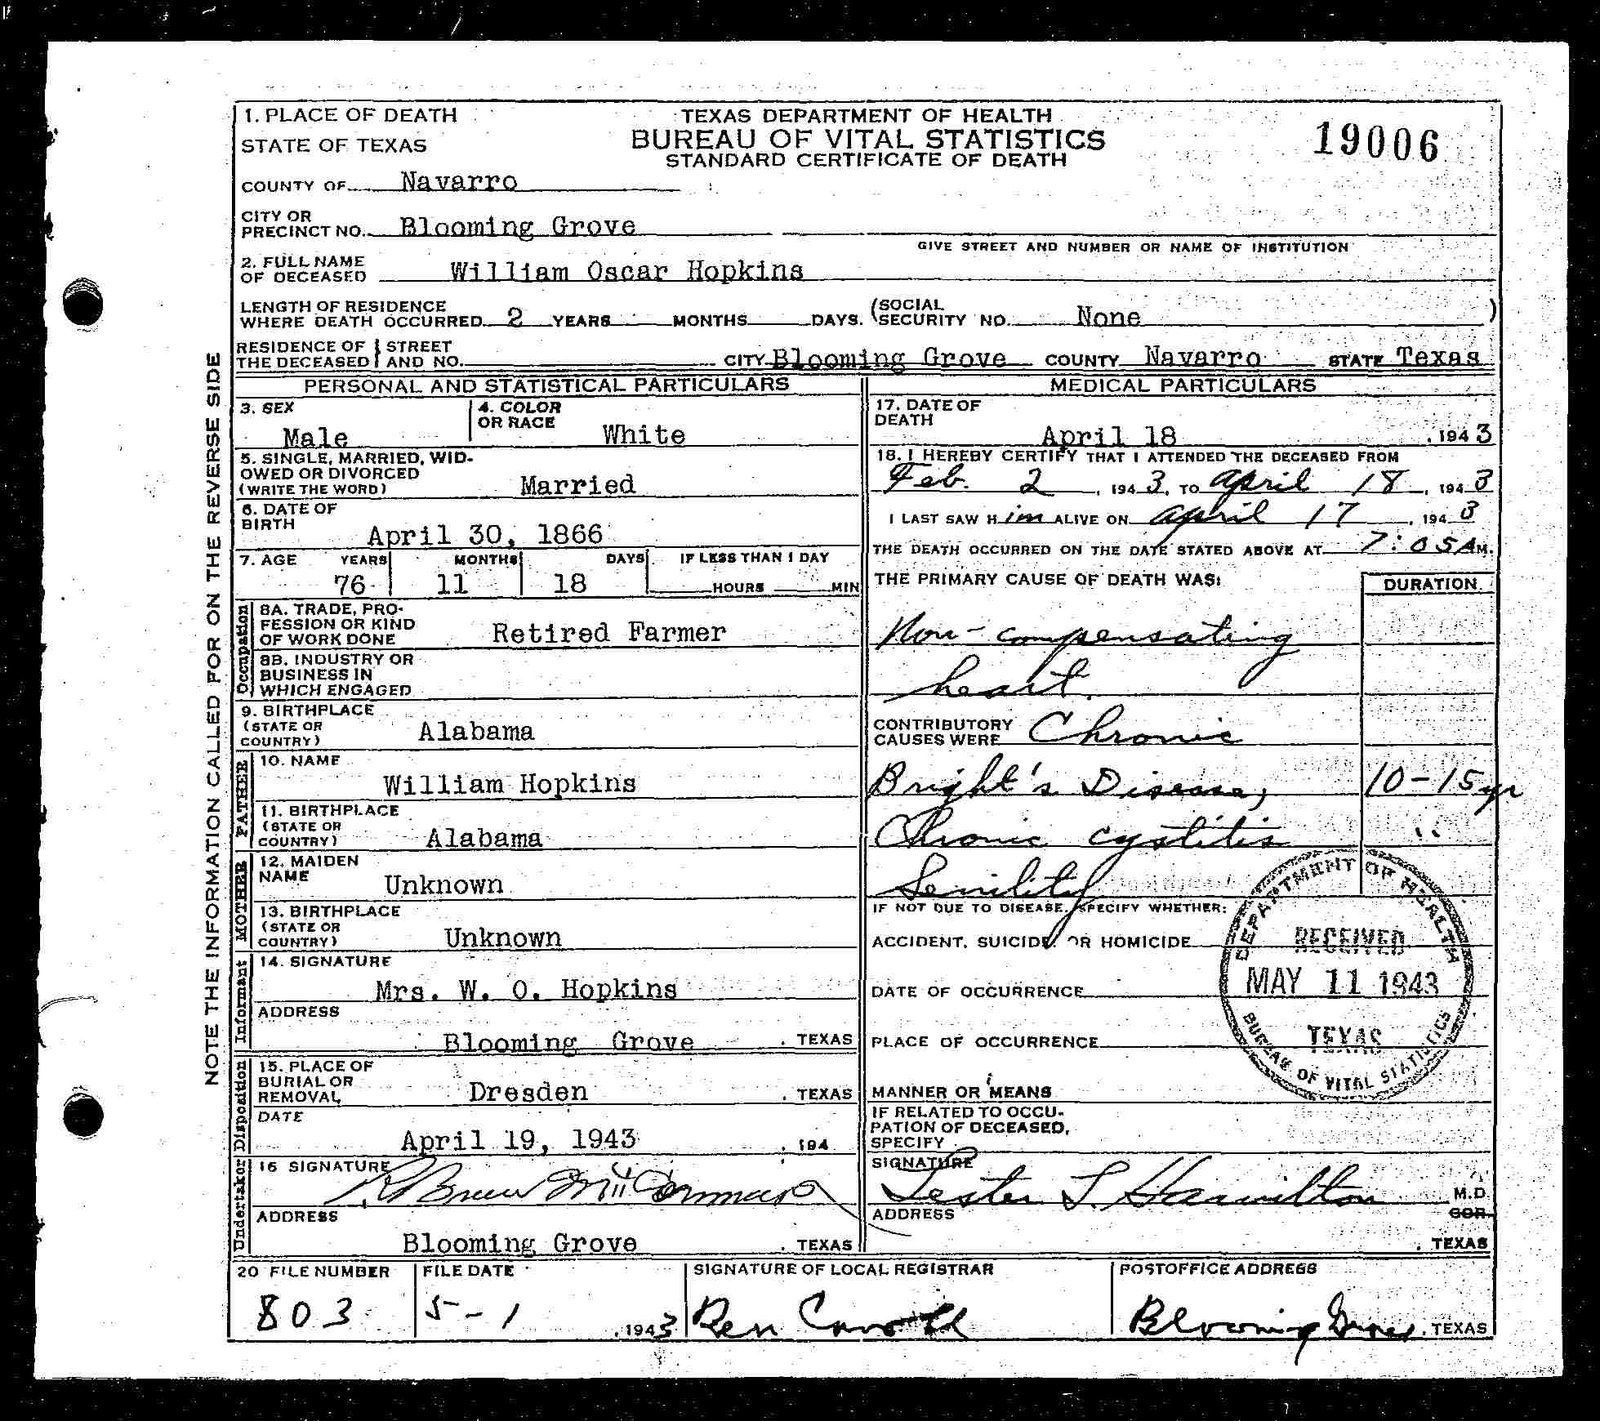 1. PLACE OF DEATH
STATE OF TEXAS
TEXAS DEPARTMENT OF HEALTH
BUREAU OF VITAL STATISTICS
STANDARD CERTIFICATE OF DEATH
19006
COUNTY OF Navarro
CITY OR PRECINCT NO. Blooming Grove
GIVE STREET AND NUMBER OR NAME OF INSTITUTION
2. FULL NAME OF DECEASED William Oscar Hopkins
LENGTH OF RESIDENCE WHERE DEATH OCCURRED 2 YEARS MONTHS DAYS. (SOCIAL SECURITY NO. None )
RESIDENCE OF THE DECEASED STREET AND NO. CITY Blooming Grove COUNTY Navarro STATE Texas
NOTE THE INFORMATION CALLED FOR ON THE REVERSE SIDE
PERSONAL AND STATISTICAL PARTICULARS
3. SEX Male
4. COLOR OR RACE White
5. SINGLE, MARRIED, WIDOWED OR DIVORCED (WRITE THE WORD) Married
6. DATE OF BIRTH April 30, 1866
7. AGE YEARS MONTHS DAYS IF LESS THAN 1 DAY
76 11 18 HOURS MIN
Occupation
8A. TRADE, PROFESSION OR KIND OF WORK DONE Retired Farmer
8B. INDUSTRY OR BUSINESS IN WHICH ENGAGED
9. BIRTHPLACE (STATE OR COUNTRY) Alabama
FATHER
10. NAME William Hopkins
11. BIRTHPLACE (STATE OR COUNTRY) Alabama
MOTHER
12. MAIDEN NAME Unknown
13. BIRTHPLACE (STATE OR COUNTRY) Unknown
Informant
14. SIGNATURE Mrs. W. O. Hopkins
ADDRESS Blooming Grove , TEXAS
Disposition
15. PLACE OF BURIAL OR REMOVAL Dresden , TEXAS
DATE April 19, 1943 , 194
Undertaker
16 SIGNATURE
ADDRESS Blooming Grove , TEXAS
MEDICAL PARTICULARS
17. DATE OF DEATH April 18 , 1943
18. I HEREBY CERTIFY THAT I ATTENDED THE DECEASED FROM
Feb. 2 , 1943, TO April 18 , 1943
I LAST SAW Him ALIVE ON April 17 , 1943
THE DEATH OCCURRED ON THE DATE STATED ABOVE AT 7:05 A M.
THE PRIMARY CAUSE OF DEATH WAS: DURATION
Non-compensating
heart.
CONTRIBUTORY CAUSES WERE Chronic
Bright's Disease, 10-15 yr
Chronic cystitis "
Senility
IF NOT DUE TO DISEASE, SPECIFY WHETHER:
ACCIDENT, SUICIDE, OR HOMICIDE
DATE OF OCCURRENCE
PLACE OF OCCURRENCE
MANNER OR MEANS
IF RELATED TO OCCUPATION OF DECEASED, SPECIFY
DEPARTMENT OF HEALTH
RECEIVED
MAY 11 1943
TEXAS
BUREAU OF VITAL STATISTICS
SIGNATURE Lester L. Hamilton M.D.
COR.
ADDRESS , TEXAS
20 FILE NUMBER 803
FILE DATE 5-1 , 1943
SIGNATURE OF LOCAL REGISTRAR Ben
POSTOFFICE ADDRESS Blooming Grove, TEXAS